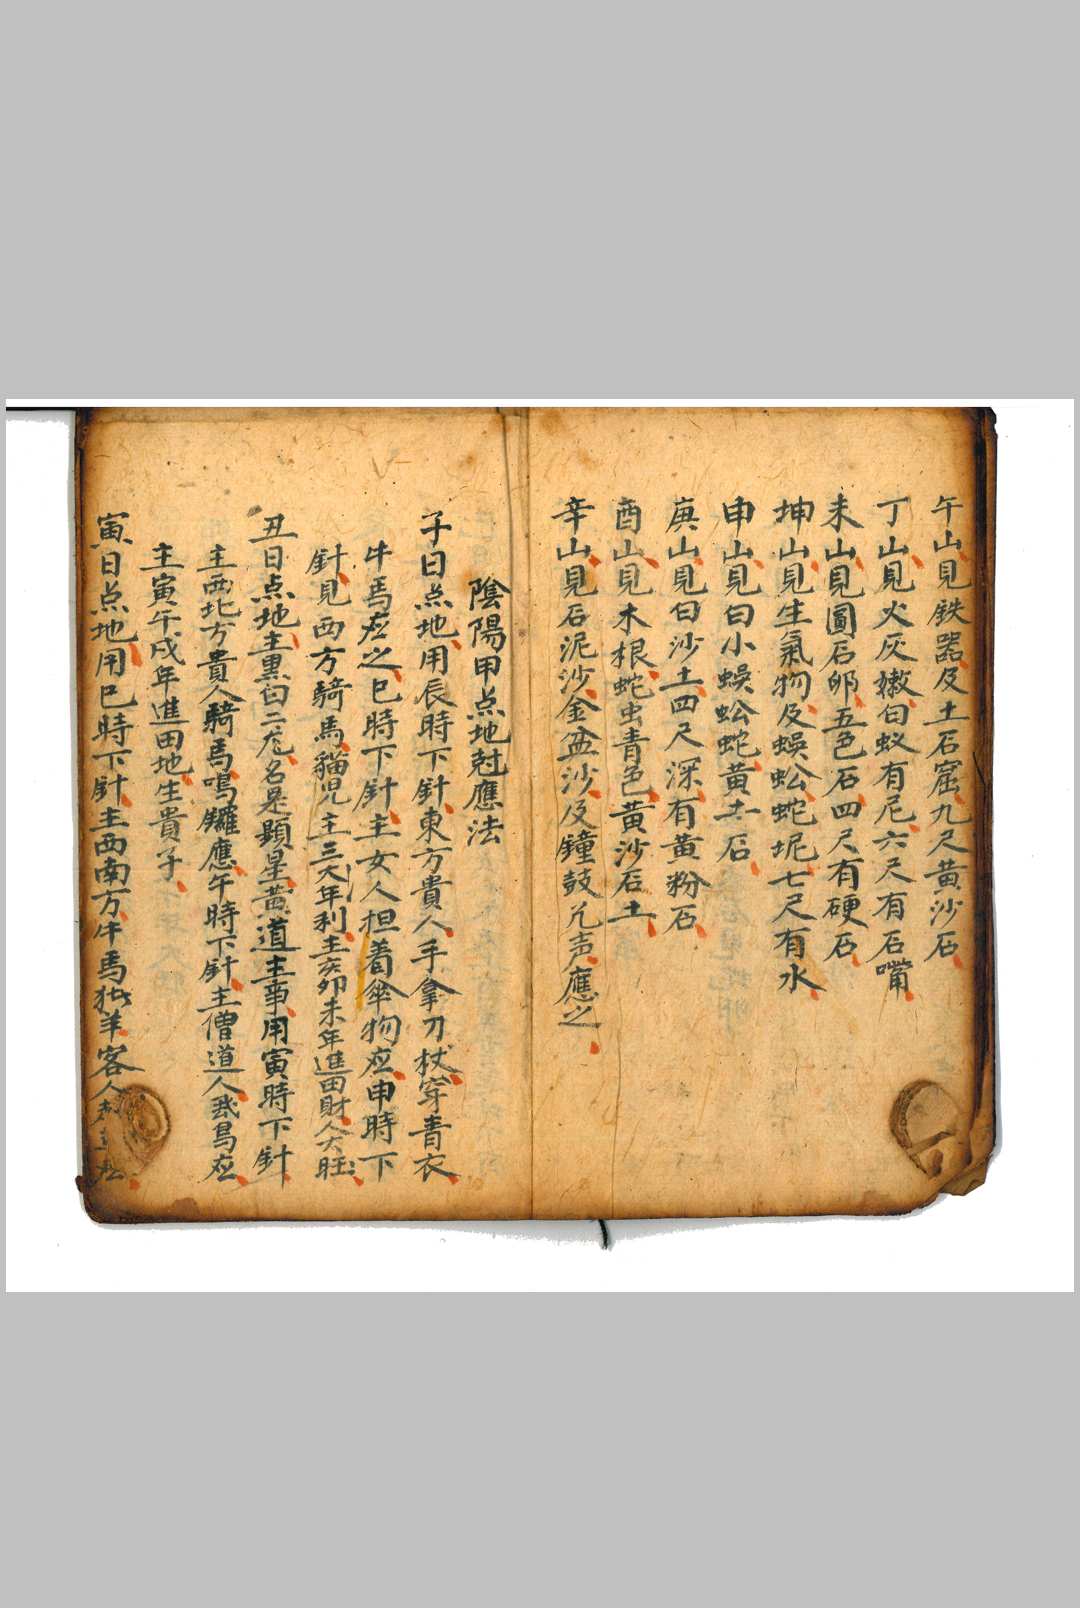 午山見鉄器及土石窟九尺黄沙石
丁山見火灰嫩白蚁有尼六尺有石嘴
未山見圓石卵五色石四尺有硬石
坤山見生氣物及蜈蚣蛇坭七尺有水
申山見白小蜈蚣蛇黄土石
庚山見白沙土四尺深有黄粉石
酉山見木根蛇虫青色黄沙石土
辛山見石泥沙金盆沙及鐘鼓兊声應之
陰陽甲点地尅應法
子日点地用辰時下針東方貴人手拿刀杖穿青衣
牛馬应之巳時下針主女人担着傘物应申時下
針見西方騎馬猫児主三六年利主亥卯未年進田財人大旺
丑日点地主黒白二 名是顕星黄道主事用寅時下針
主西北方貴人騎馬鳴鑼應午時下針主僧道人 鳥应
主寅午戌年進田地生貴子
寅日点地用巳時下針主西南方牛馬 羊客人